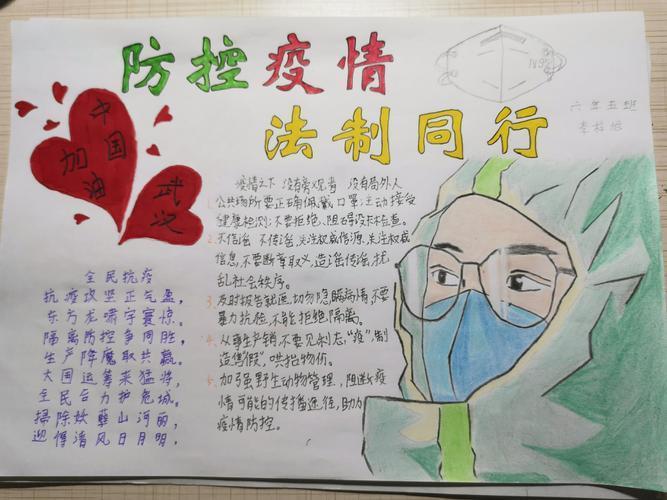 防控疫情
法制同行
N95
六年五班
中国
加油
武汉
疫情之下 没有旁观者 没有局外人
1. 公共场所要正确佩戴口罩,主动接受
健康检测;不要拒绝、阻碍设卡检查。
2. 不信谣 不传谣,关注权威信源,关注权威
信息,不要断章取义,造谣传谣,扰
乱社会秩序。
3. 及时报告就医,切勿隐瞒病情,不要
暴力抗拒,不能拒绝隔离。
4. 从事生产销不要见利忘,"疫",制
造售假",哄抬物价。
5. 加强野生动物管理,阻断疫
情可能的传播途径,助力
疫情防控。
全民抗疫
抗疫攻坚正气盈,
东方龙啸宇寰惊。
隔离防控争同胜,
生产降魔取共赢。
大国运筹来猛将,
全民合力护危城。
掃除妖孽山河丽,
迎得清风日月明。